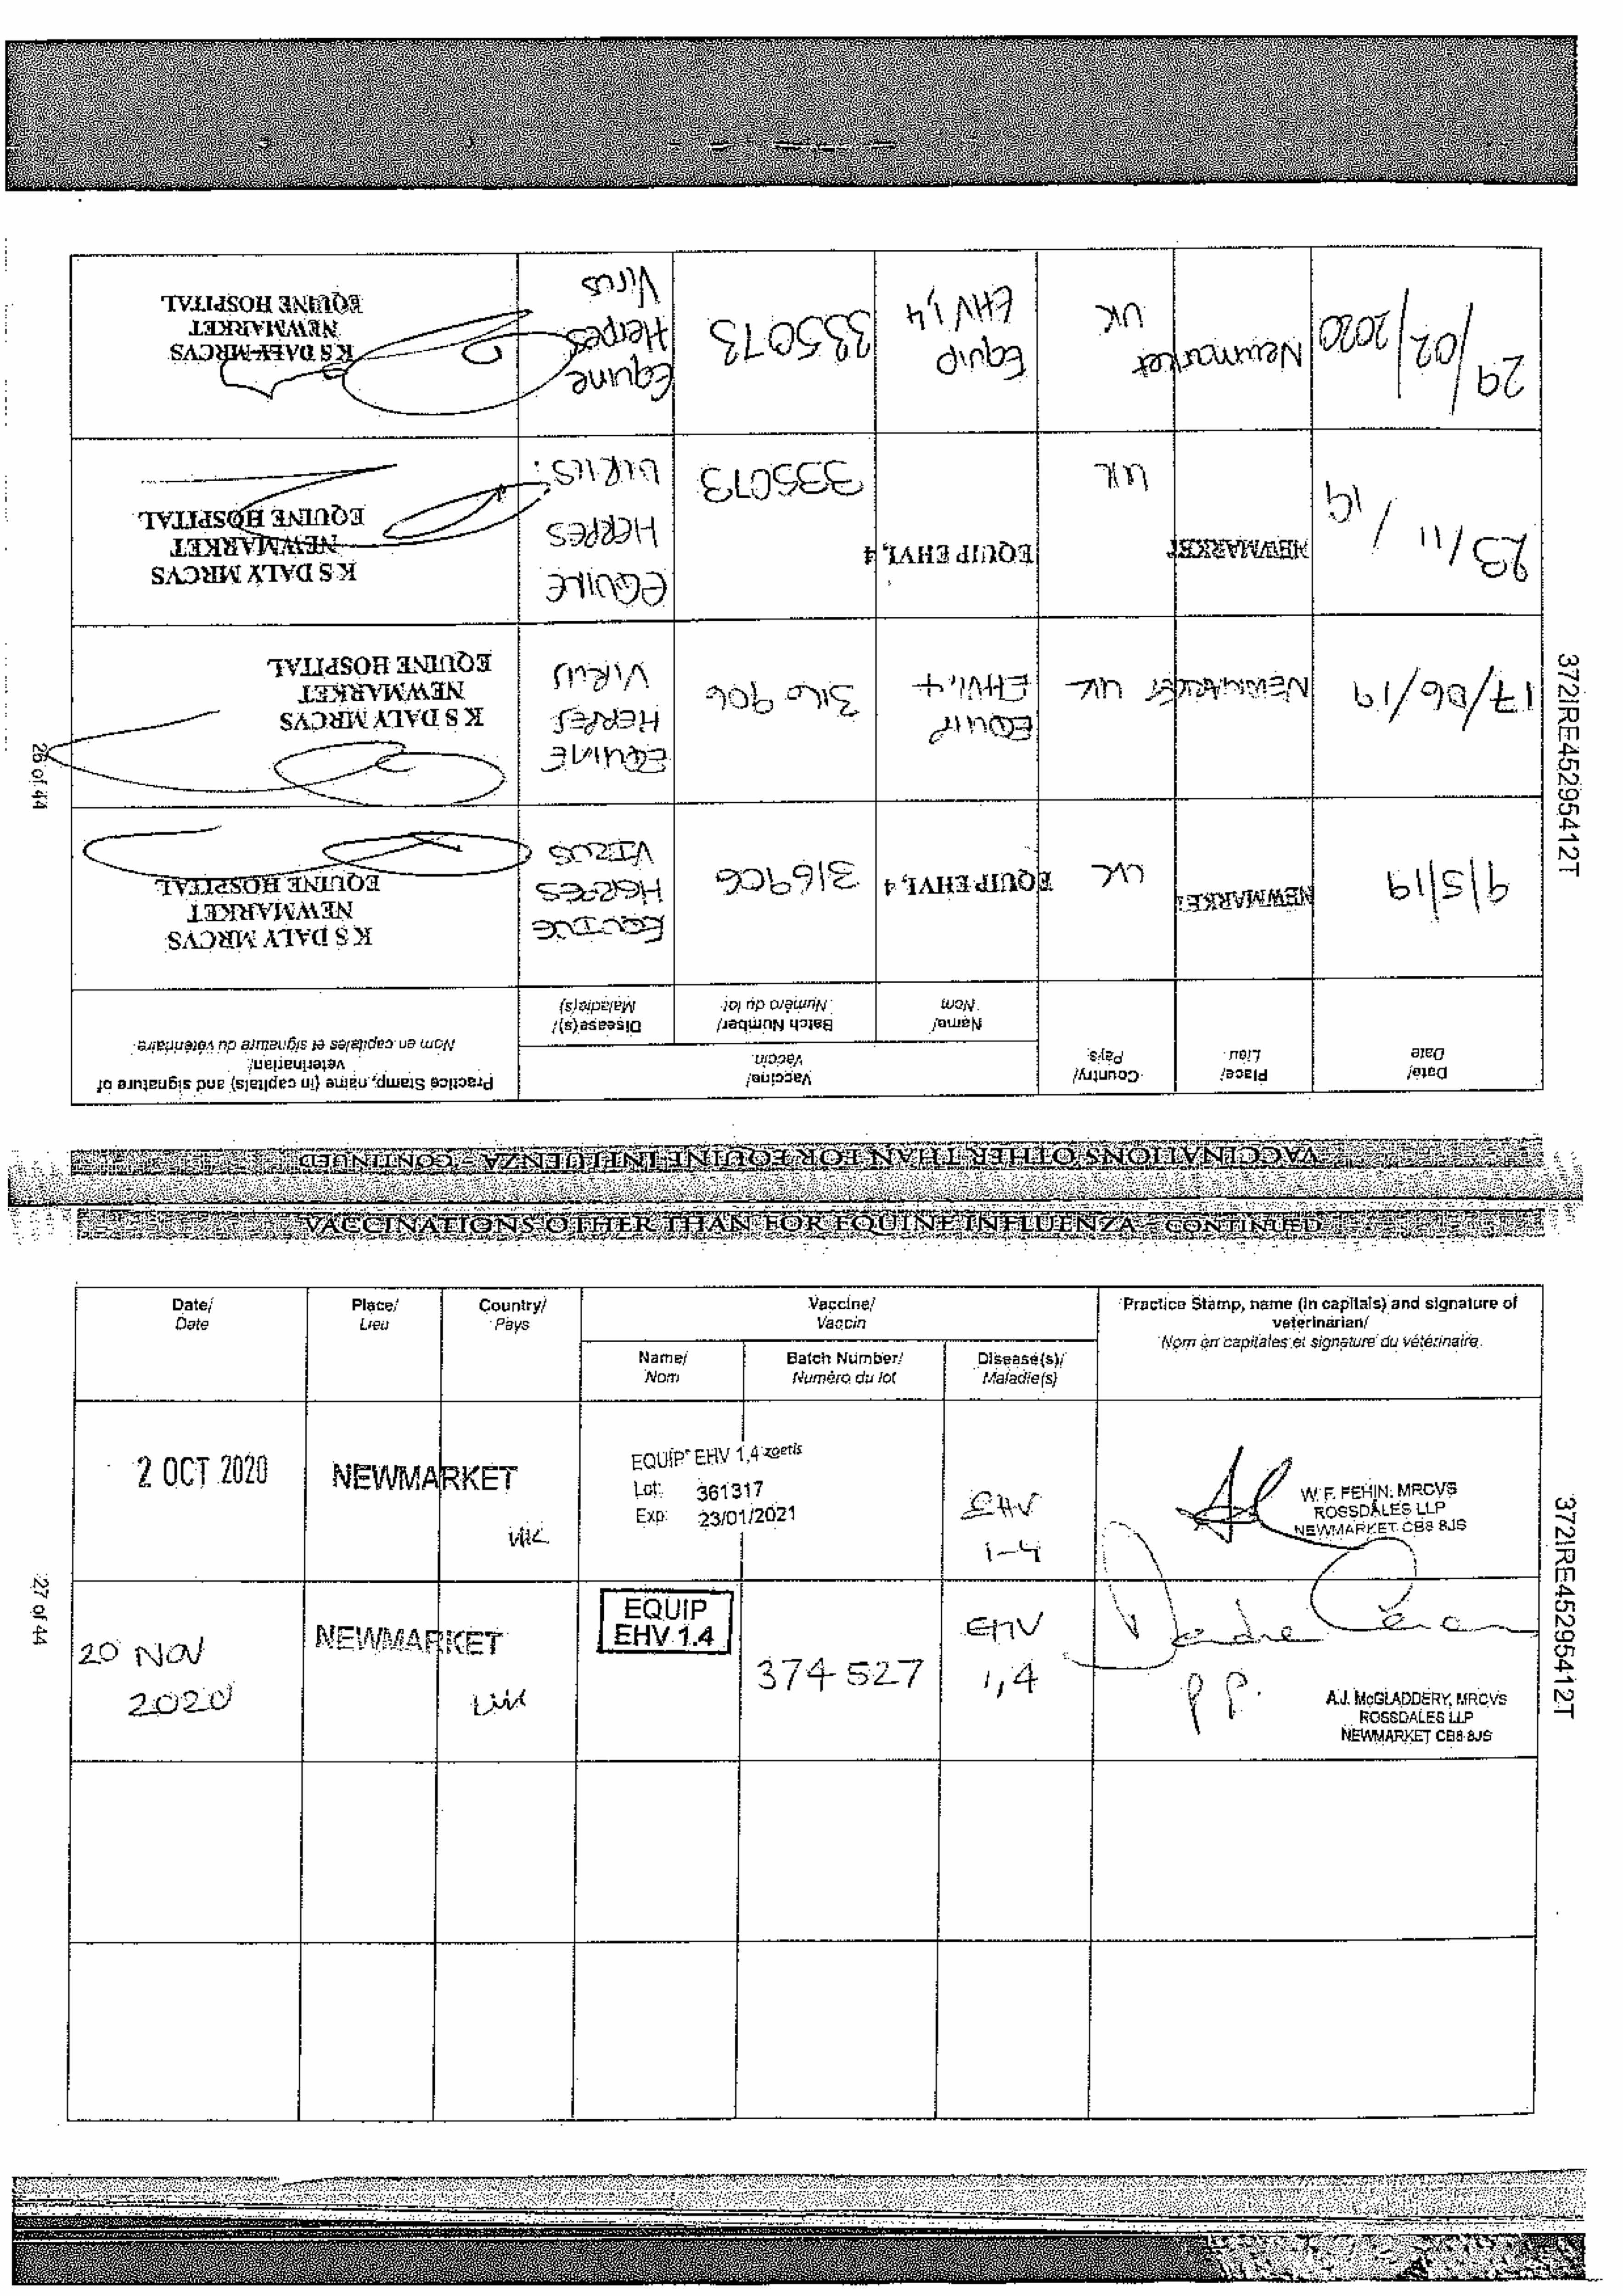 VACCINATIONS OTHER THAN FOR EQUINE INFLUENZA - CONTINUED
Date/
Date
Place/
Lieu
Country/
Pays
Vaccine/
Vaccin
Name/
Nom
Batch Number/
Numéro du lot
Disease(s)/
Maladie(s)
Practice Stamp, name (in capitals) and signature of
veterinarian/
Nom en capitales et signature du vétérinaire
9/5/19
NEWMARKET
UK
EQUIP EHV1,4
316906
EQUINE
HERPES
VIRUS
K S DALY MRCVS
NEWMARKET
EQUINE HOSPITAL
17/06/19
NEWMARKET
UK
EQUIP
EHV1,4
316906
EQUINE
HERPES
VIRUS
K S DALY MRCVS
NEWMARKET
EQUINE HOSPITAL
23/11/19
NEWMARKET
UK
EQUIP EHV1,4
335073
EQUINE
HERPES
VIRUS.
K S DALY MRCVS
NEWMARKET
EQUINE HOSPITAL
29/02/2020
Newmarket
UK
Equip
EHV 1,4
335073
Equine
Herpes
Virus
K S DALY MRCVS
NEWMARKET
EQUINE HOSPITAL
372IRE45295412T
26 of 44
VACCINATIONS OTHER THAN FOR EQUINE INFLUENZA - CONTINUED
Date/
Date
Place/
Lieu
Country/
Pays
Vaccine/
Vaccin
Name/
Nom
Batch Number/
Numéro du lot
Disease(s)/
Maladie(s)
Practice Stamp, name (in capitals) and signature of
veterinarian/
Nom en capitales et signature du vétérinaire
2 OCT 2020
NEWMARKET
UK
EQUIP EHV 1,4 zoetis
Lot: 361317
Exp: 23/01/2021
EHV
1-4
W. F. FEHIN. MRCVS
ROSSDALES LLP
NEWMARKET CB8 8JS
20 NOV
2020
NEWMARKET
UK
EQUIP
EHV 1.4
374527
EHV
1,4
PP.
A.J. McGLADDERY, MRCVS
ROSSDALES LLP
NEWMARKET CB8 8JS
372IRE45295412T
27 of 44